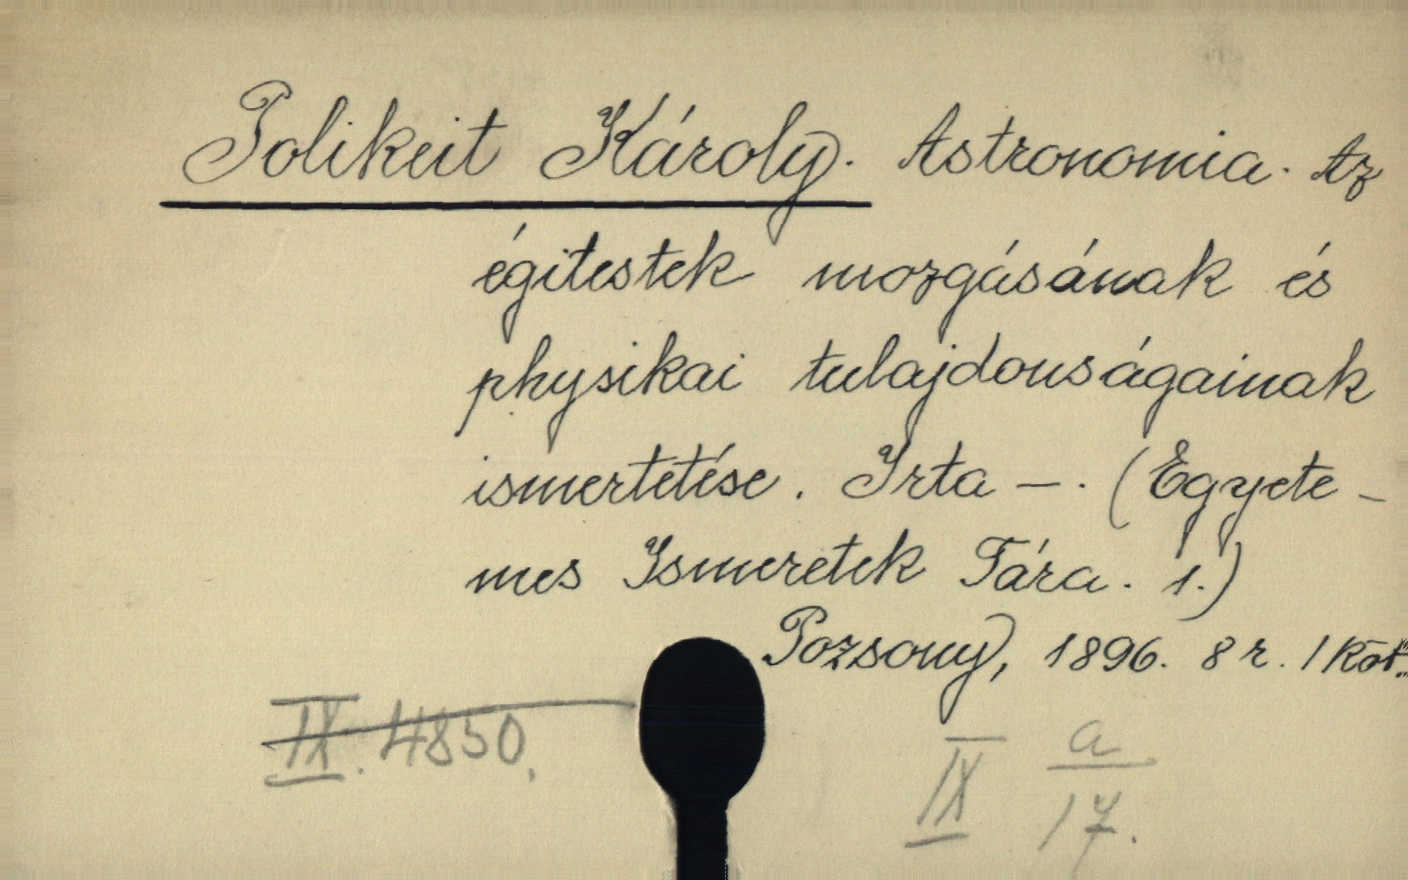 Polikeit Károly. Astronomia. Az
égitestek mozgásának és
physikai tulajdonságainak
ismertetése. Irta —. (Egyete-
mes Ismeretek Tára. 1.)
Pozsony, 1896. 8 r. 1 Köt.
IX. 4850.
IX a/17.